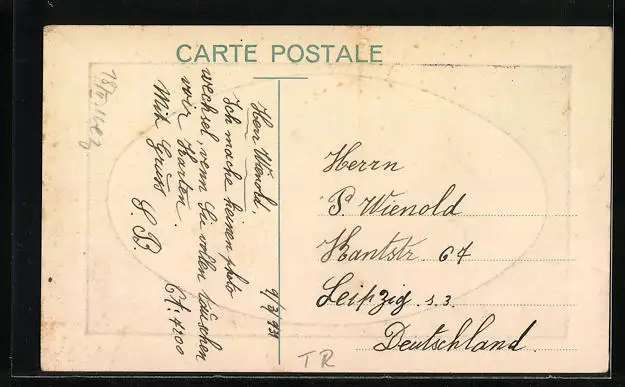 CARTE POSTALE
Herr Wienold.
Ich mache keinen photo
wechsel, wenn Sie wollen tauschen
wir Karten.
Mit Gruss
S. B.
Herrn
P. Wienold
Kantstr. 64
Leipzig s. 3.
Deutschland.
TR